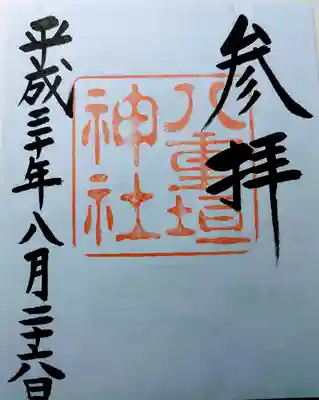 参拝
八重垣
神社
平成三十年八月二十八日